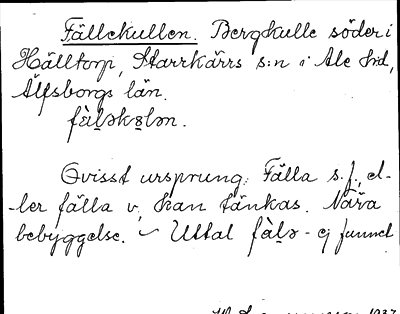 Fällekullen. Bergkulle söder i
Hälltorp, Starrkärrs s:n i Ale hd,
Älfsborgs län.
fàl̥əku̥lən.
Ovisst ursprung. Fälla s. f., el-
-ler fälla v, kan tänkas. Nära
bebyggelse. – Uttal fàl̥ə - ej funnet
1937